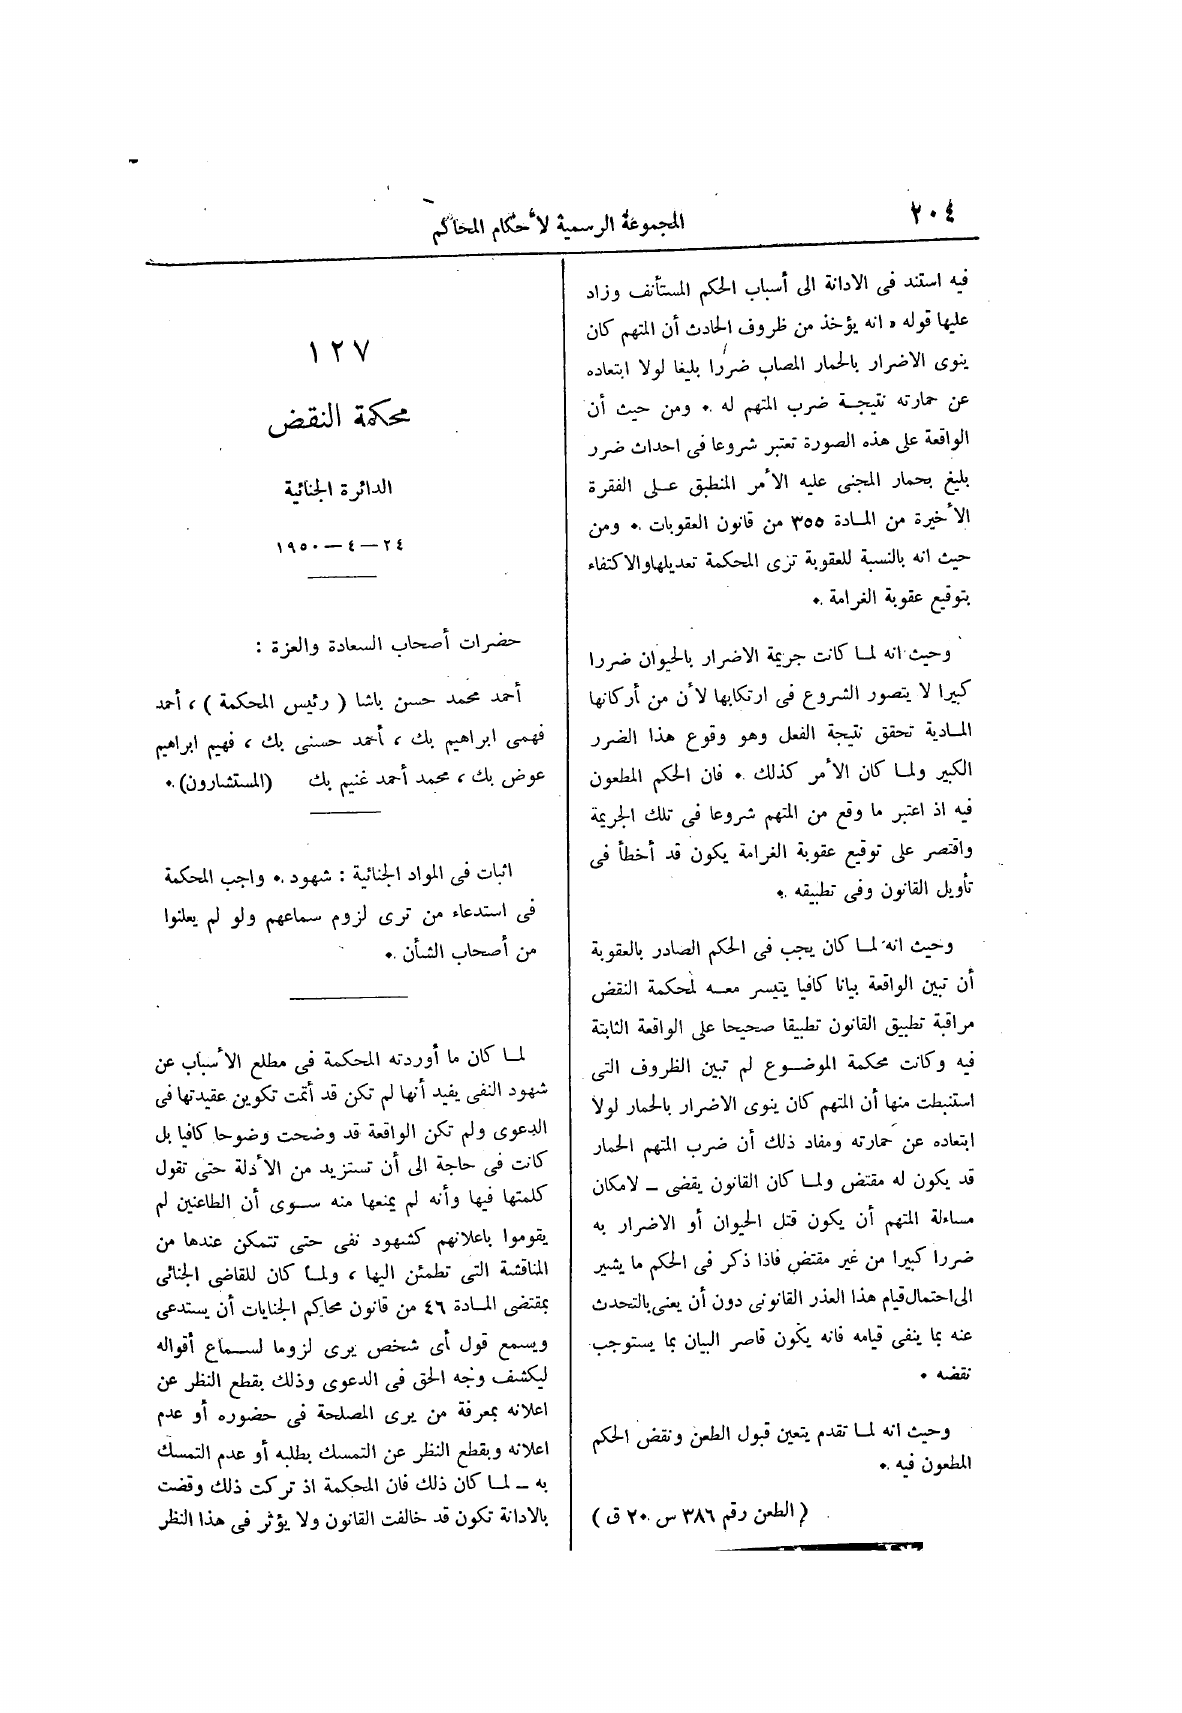 ٢٠٤
المجموعة الرسمية لأحكام المحاكم
فيه استند فى الادانة الى أسباب الحكم المستأنف وزاد
عليها قوله « انه يؤخذ من ظروف الحادث أن المتهم كان
ينوى الاضرار بالحمار المصاب ضررا بليغا لولا ابتعاده
عن حمارته نتيجة ضرب المتهم له . ومن حيث أن
الواقعة على هذه الصورة تعتبر شروعا فى احداث ضرر
بليغ بحمار المجنى عليه الأمر المنطبق على الفقرة
الأخيرة من المادة ٣٥٥ من قانون العقوبات . ومن
حيث انه بالنسبة للعقوبة ترى المحكمة تعديلها والاكتفاء
بتوقيع عقوبة الغرامة .
وحيث انه لما كانت جريمة الاضرار بالحيوان ضررا
كبيرا لا يتصور الشروع فى ارتكابها لأن من أركانها
المادية تحقق نتيجة الفعل وهو وقوع هذا الضرر
الكبير ولما كان الأمر كذلك . فان الحكم المطعون
فيه اذ اعتبر ما وقع من المتهم شروعا فى تلك الجريمة
واقتصر على توقيع عقوبة الغرامة يكون قد أخطأ فى
تأويل القانون وفى تطبيقه .
وحيث انه لما كان يجب فى الحكم الصادر بالعقوبة
أن تبين الواقعة بيانا كافيا يتيسر معه لمحكمة النقض
مراقبة تطبيق القانون تطبيقا صحيحا على الواقعة الثابتة
فيه وكانت محكمة الموضوع لم تبين الظروف التى
استنبطت منها أن المتهم كان ينوى الاضرار بالحمار لولا
ابتعاده عن حمارته ومفاد ذلك أن ضرب المتهم الحمار
قد يكون له مقتض ولما كان القانون يقضى – لامكان
مساءلة المتهم أن يكون قتل الحيوان أو الاضرار به
ضررا كبيرا من غير مقتض فاذا ذكر فى الحكم ما يشير
الى احتمال قيام هذا العذر القانونى دون أن يعنى بالتحدث
عنه بما ينفى قيامه فانه يكون قاصر البيان بما يستوجب
نقضه .
وحيث انه لما تقدم يتعين قبول الطعن ونقض الحكم
المطعون فيه .
( الطعن رقم ٣٨٦ س ٢٠ ق )
١٢٧
محكمة النقض
الدائرة الجنائية
٢٤ – ٤ – ١٩٥٠
حضرات أصحاب السعادة والعزة :
أحمد محمد حسن باشا ( رئيس المحكمة ) ، أحمد
فهمى ابراهيم بك ، أحمد حسنى بك ، فهيم ابراهيم
عوض بك ، محمد أحمد غنيم بك (المستشارون) .
اثبات فى المواد الجنائية : شهود . واجب المحكمة
فى استدعاء من ترى لزوم سماعهم ولو لم يعلنوا
من أصحاب الشأن .
لما كان ما أوردته المحكمة فى مطلع الأسباب عن
شهود النفى يفيد أنها لم تكن قد أتمت تكوين عقيدتها فى
الدعوى ولم تكن الواقعة قد وضحت وضوحا كافيا بل
كانت فى حاجة الى أن تستزيد من الأدلة حتى تقول
كلمتها فيها وأنه لم يمنعها منه سوى أن الطاعنين لم
يقوموا باعلانهم كشهود نفى حتى تتمكن عندها من
المناقشة التى تطمئن اليها ، ولما كان للقاضى الجنائى
بمقتضى المادة ٤٦ من قانون محاكم الجنايات أن يستدعى
ويسمع قول أى شخص يرى لزوما لسماع أقواله
ليكشف وجه الحق فى الدعوى وذلك بقطع النظر عن
اعلانه بمعرفة من يرى المصلحة فى حضوره أو عدم
اعلانه وبقطع النظر عن التمسك بطلبه أو عدم التمسك
به – لما كان ذلك فان المحكمة اذ تركت ذلك وقضت
بالادانة تكون قد خالفت القانون ولا يؤثر فى هذا النظر